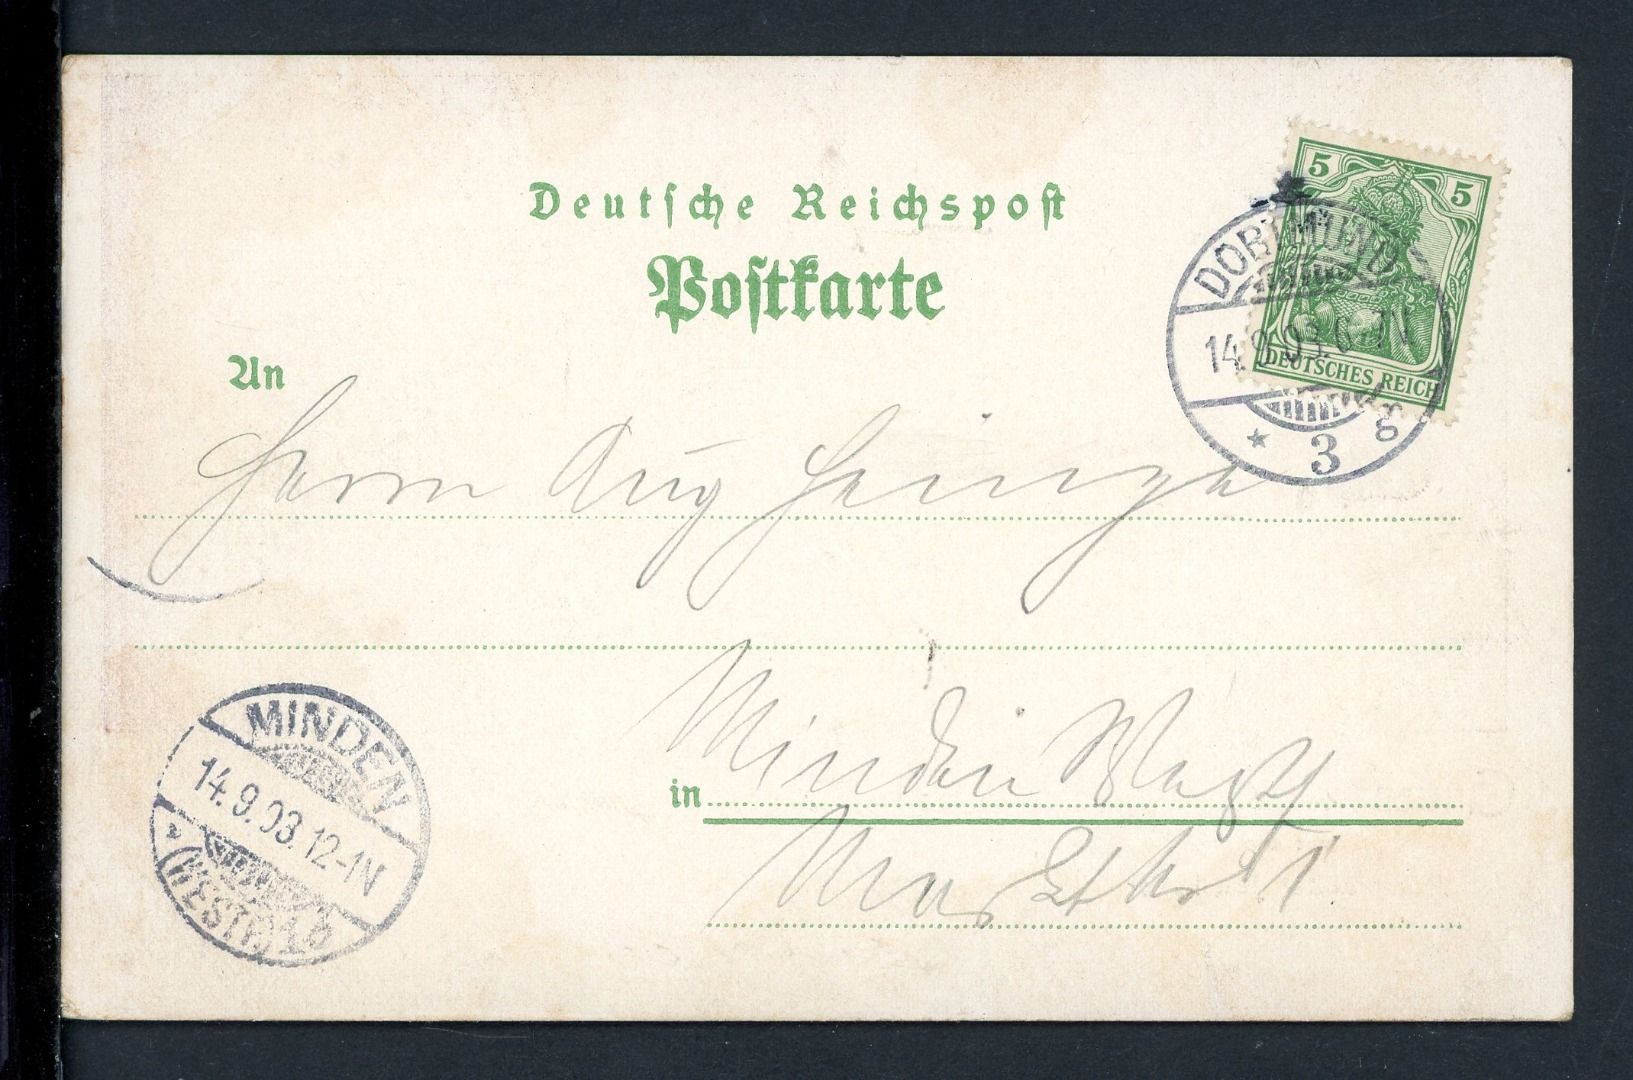 Deutsche Reichspost
Postkarte
5 5
DEUTSCHES REICH
DORTMUND
14.9.03. 6-7V
* 3 g
An
Herrn Aug
in Minden Westf
1
MINDEN
14.9.03.12-1N
* (WESTF) 1 b